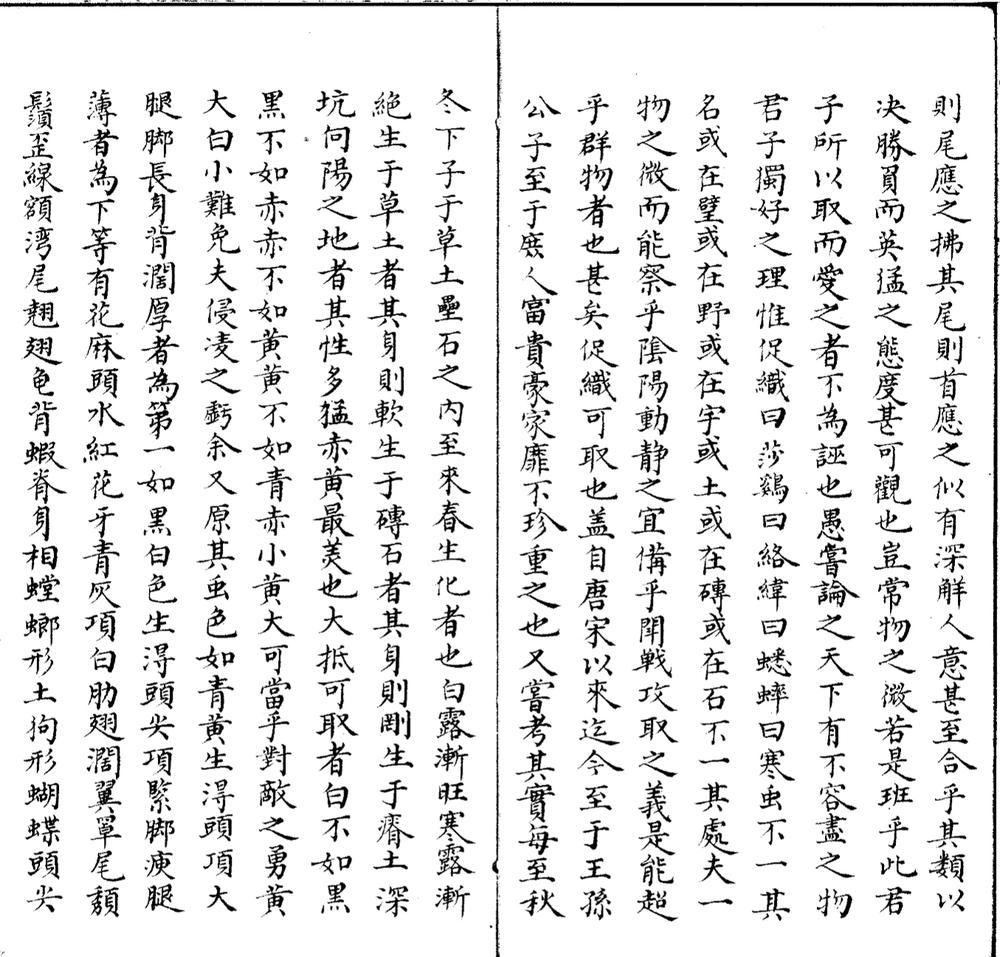 則尾應之拂其尾則首應之似有深解人意甚至合乎其類以
决勝負而英猛之態度甚可觀也豈常物之微若是班乎此君
子所以取而愛之者不為誣也愚嘗論之天下有不容盡之物
君子獨好之理惟促織曰莎鷄曰絡緯曰蟋蟀曰寒虫不一其
名或在壁或在野或在宇或土或在磚或在石不一其處夫一
物之微而能察乎陰陽動静之宜備乎閗戰攻取之義是能超
乎群物者也甚矣促織可取也盖自唐宋以來迄今至于王孫
公子至于庶人富貴豪家靡不珍重之也又嘗考其實每至秋
冬下子于草土壘石之内至來春生化者也白露漸旺寒露漸
絶生于草土者其身則軟生于磚石者其身則剛生于瘠土深
坑向陽之地者其性多猛赤黄最美也大抵可取者白不如黑
黑不如赤赤不如黄黄不如青赤小黄大可當乎對敵之勇黄
大白小難免夫侵凌之虧余又原其虫色如青黄生淂頭項大
腿脚長身背濶厚者為第一如黒白色生淂頭尖項緊脚瘦腿
薄者為下等有花麻頭水紅花牙青灰項白肋翅濶翼罩尾頿
鬚歪線額湾尾翹翅龟背蝦脊身相螳螂形土狗形蝴蝶頭尖